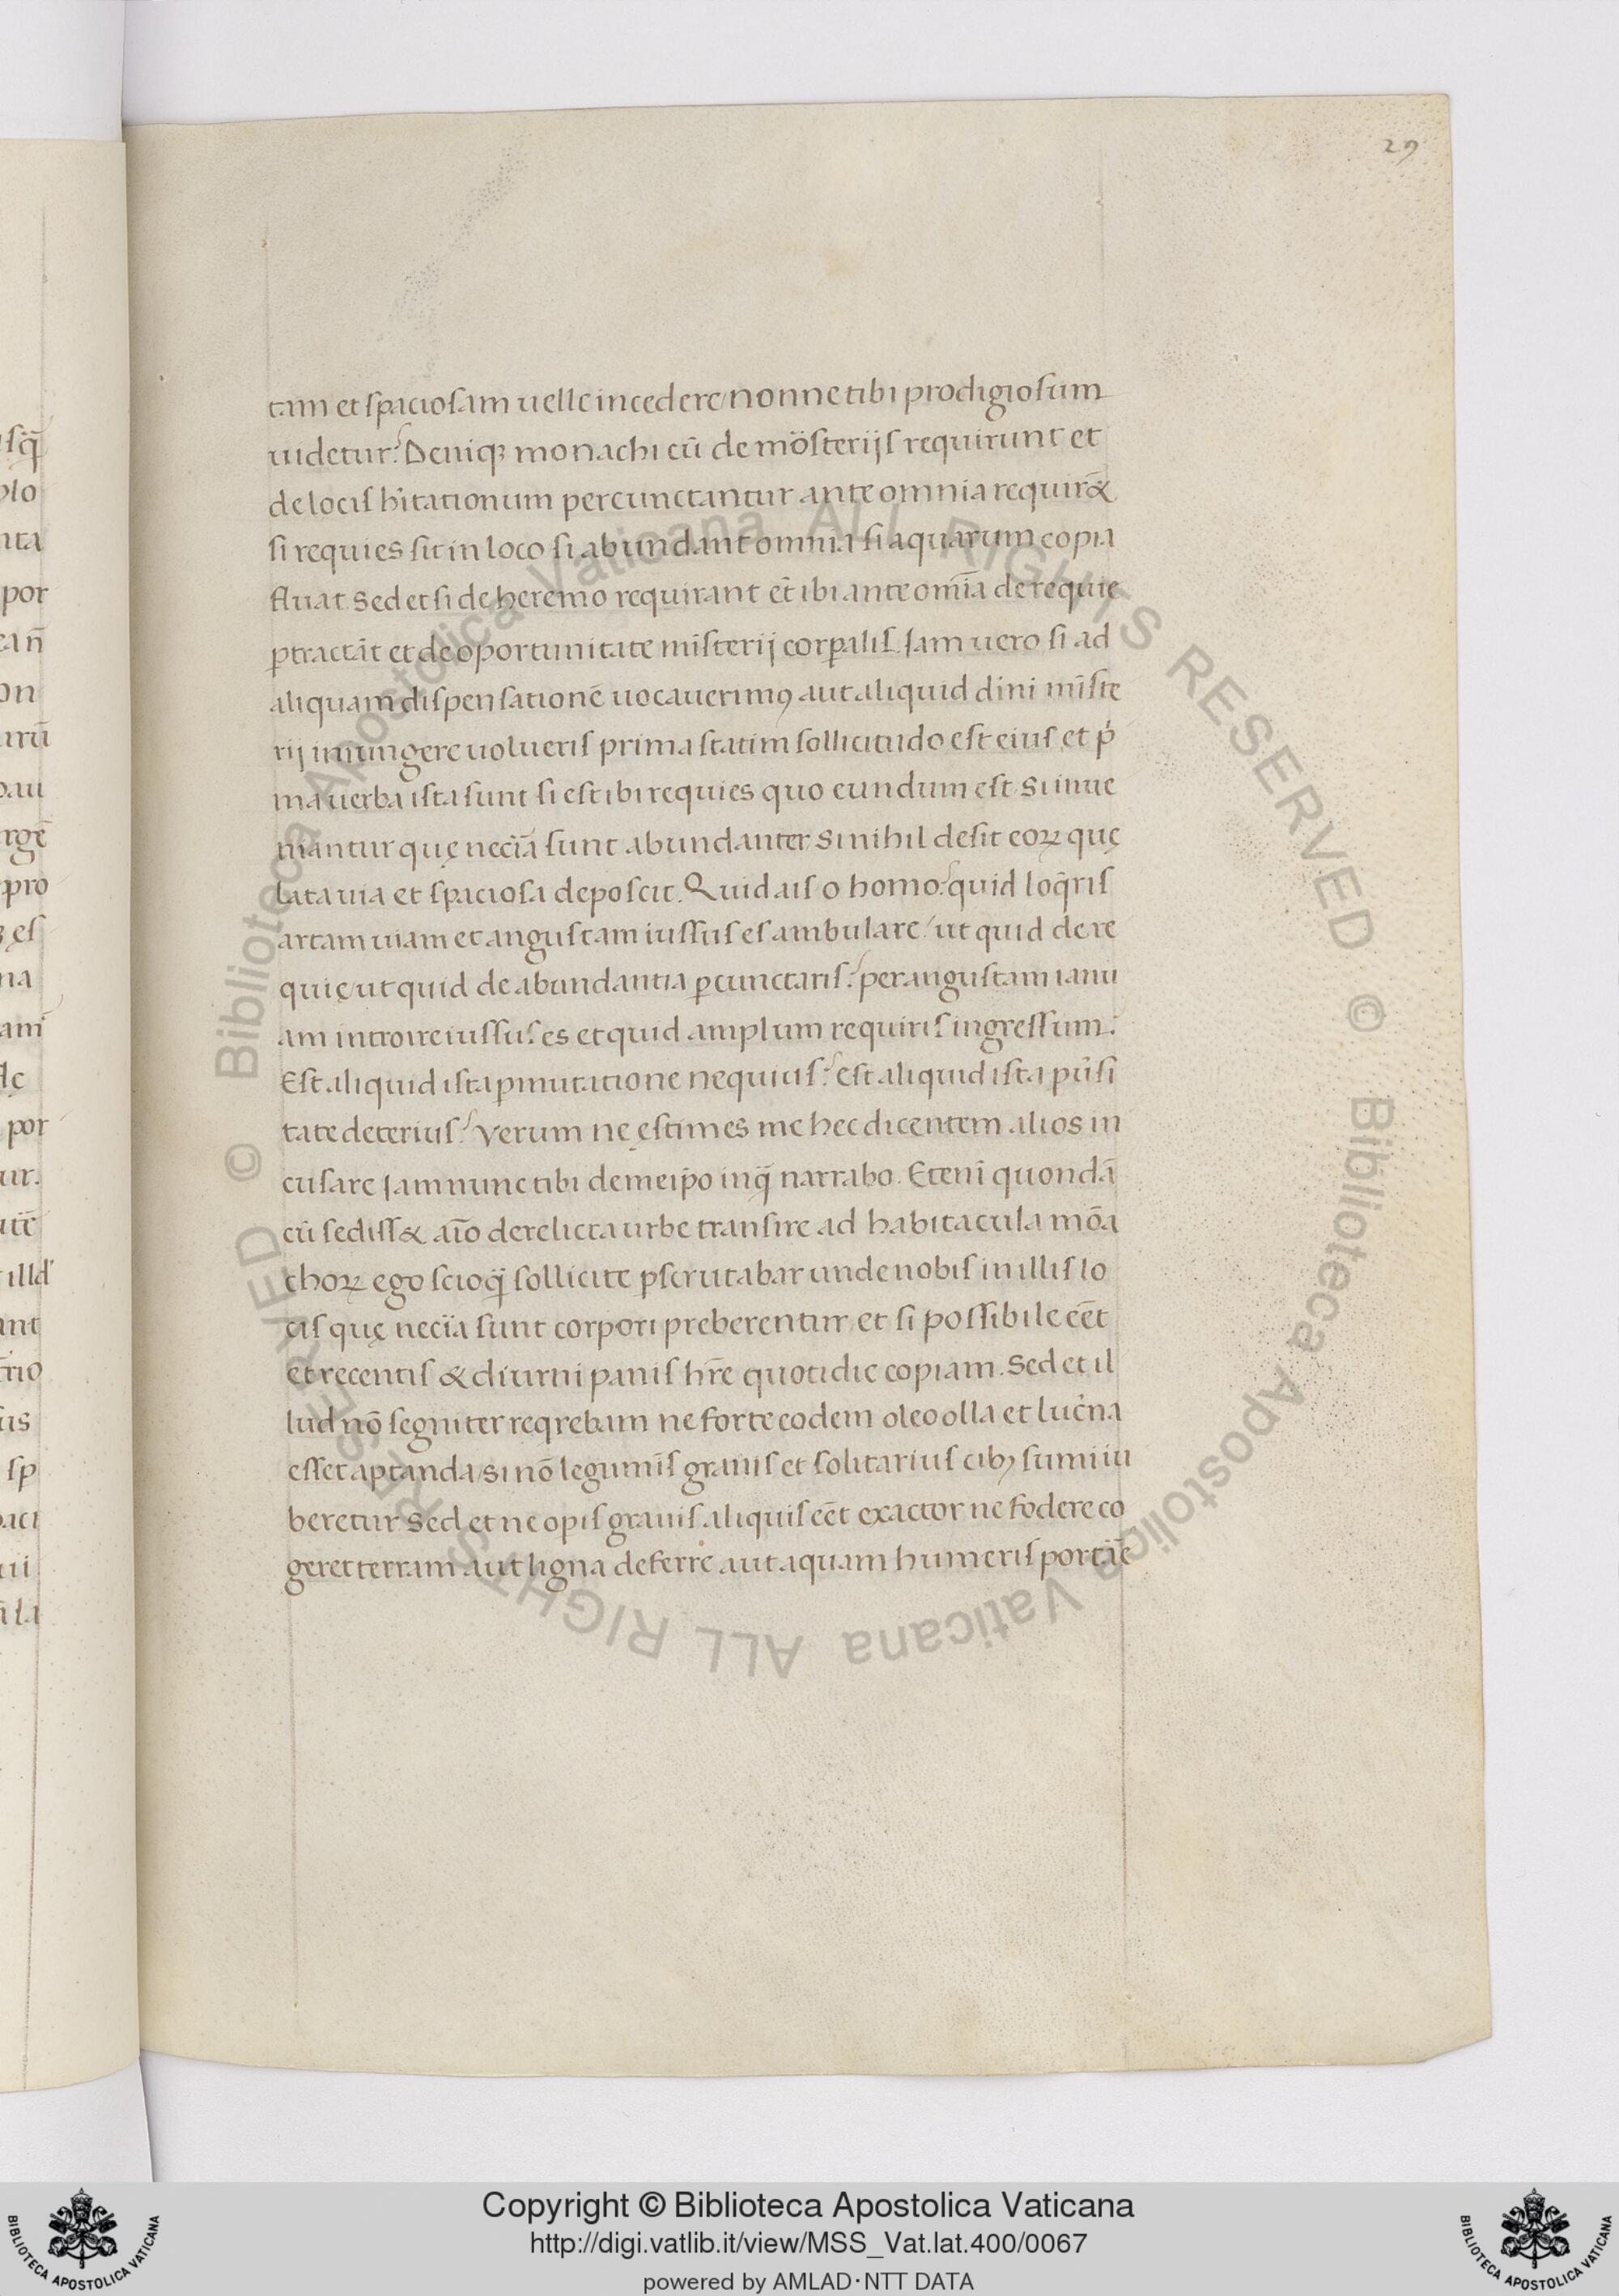 29
tam et spaciosam uelle incedere/ nonne tibi prodigiosum
uidetur? Deniqꝫ monachi cū de mōsterijs requirunt et
de locis hitationum percunctantur ante omnia requirū&
si requies sit in loco si abundant omnia si aquarum copia
fluat. Sed et si de heremo requirant ēt ibi ante om̄ia de requie
ꝑtractāt et de oportunitate misterij corꝑalis. Iam uero si ad
aliquam dispensationē uocauerimꝰ aut aliquid dīni miste
rij iniungere uolueris prima statim sollicitudo est eius et pͥ
ma uerba ista sunt si est ibi requies quo eundum est. Si inue
niantur quę neciā sunt abundanter. Si nihil desit eoꝝ quę
lata uia et spaciosa deposcit. Quid ais o homo? quid loq̄ris
artam uiam et angustam iussus es ambulare/ ut quid de re
quię/ ut quid de abundantia ꝑcunctaris? per angustam ianu
am introire iussus es et quid amplum requiris ingressum?
Est aliquid ista ꝑmutatione nequius? est aliquid ista ꝑuˀsi
tate deterius? Verum ne ęstimes me hec dicentem alios in
cusare Iam nunc tibi de me ip̄o inq̄ narrabo. Etenī quondā
cū sediss& aīo derelicta urbe transire ad habitacula mōa
choꝝ ego scio q̄ sollicite ꝑscrutabar unde nobis in illis lo
cis quę neciā sunt corpori preberentur et si possibile eēt
et recentis & diurni panis hr̄e quotidie copiam. Sed et il
lud nō segniter reqrebam ne forte eodem oleo olla et lucˀna
esset aptanda/ si nō legumīs grauis et solitarius cibꝰ sumi iu
beretur Sed et ne opis grauis aliquis eēt exactor ne fodere co
geret terram aut ligna deferre aut aquam humeris portāe
usq̄
plo
nta
por
pau
pro
na
por
ur.
illd
ant
sp
paci
Copyright © Biblioteca Apostolica Vaticana
http://digi.vatlib.it/view/MSS_Vat.lat.400/0067
powered by AMLAD·NTT DATA
BIBLIOTECA APOSTOLICA VATICANA
BIBLIOTECA APOSTOLICA VATICANA
© Biblioteca Apostolica Vaticana ALL RIGHTS RESERVED © Biblioteca Apostolica Vaticana ALL RIGHTS RESERVED